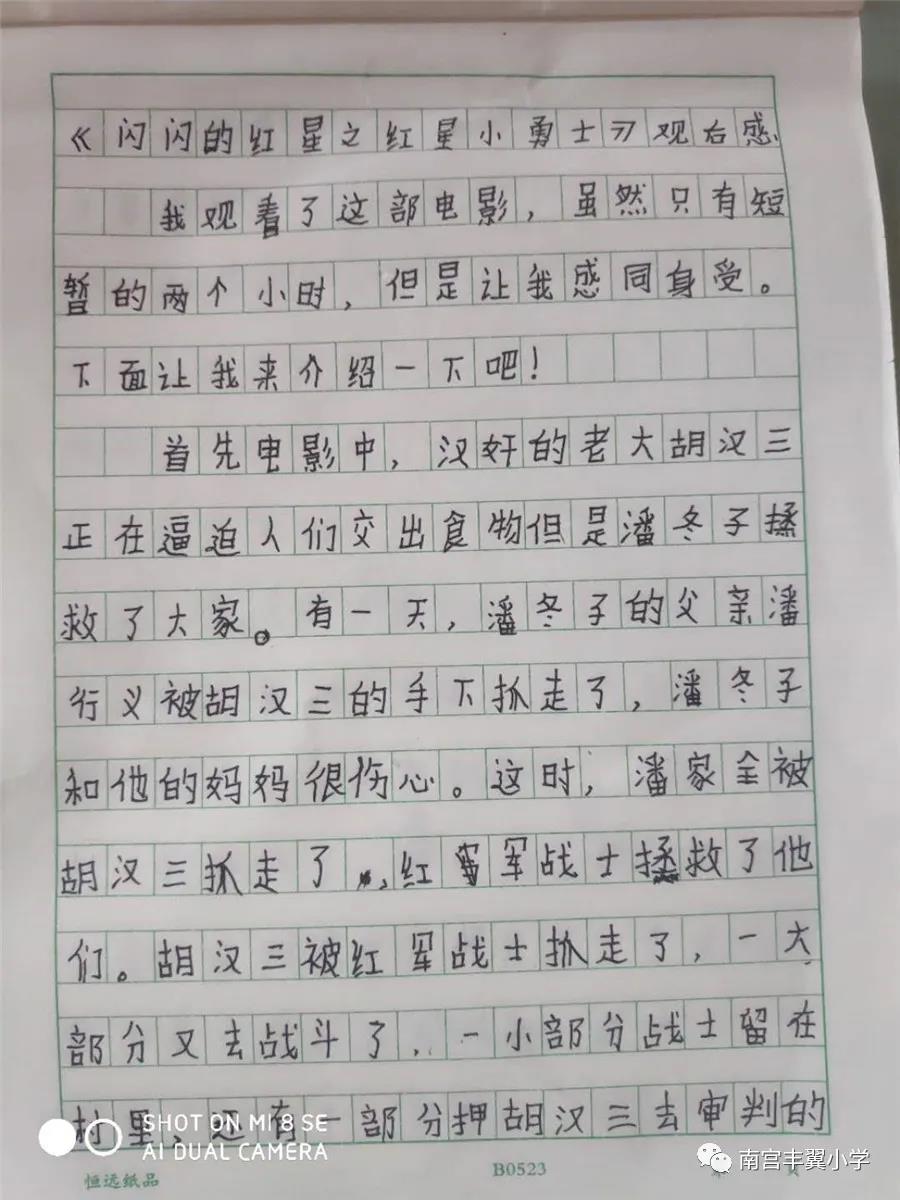 《闪闪的红星之红星小勇士》观后感
我观看了这部电影，虽然只有短
暂的两个小时，但是让我感同身受。
下面让我来介绍一下吧！
首先电影中，汉奸的老大胡汉三
正在逼迫人们交出食物但是潘冬子拯
救了大家。有一天，潘冬子的父亲潘
行义被胡汉三的手下抓走了，潘冬子
和他的妈妈很伤心。这时，潘家全被
胡汉三抓走了，红军战士拯救了他
们。胡汉三被红军战士抓走了，一大
部分又去战斗了，一小部分战士留在
村里，还有一部分押胡汉三去审判的
SHOT ON MI 8 SE
AI DUAL CAMERA
恒远纸品
B0523
南宫丰翼小学